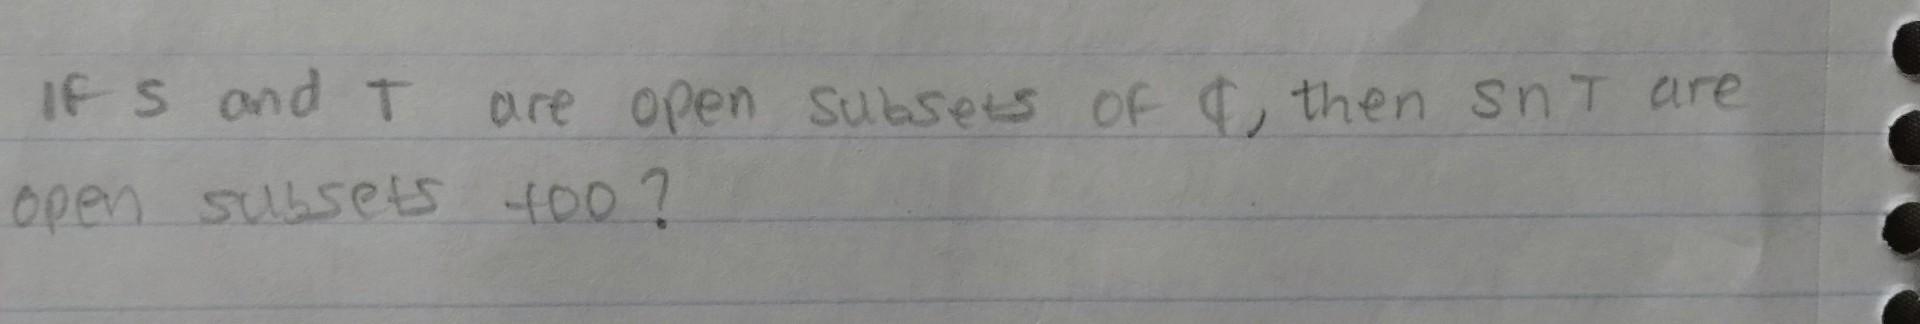 If S and T are open subsets of ₵, then S∩T are
open subsets too?